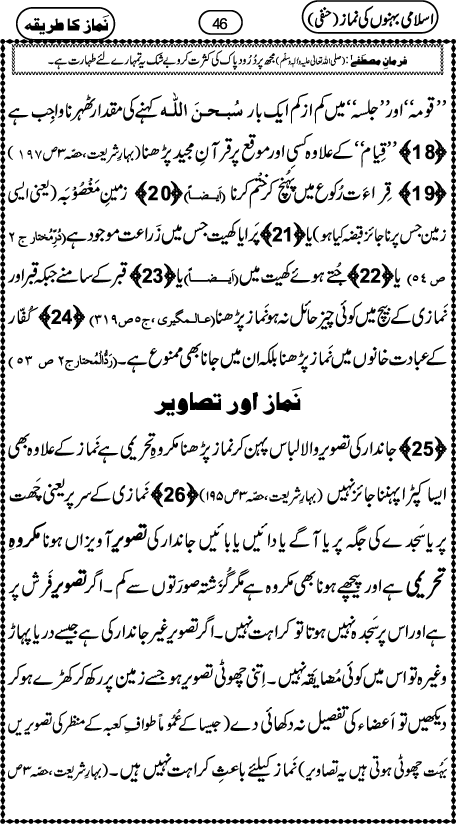 اسلامی بہنوں کی نماز (حنفی)
46
نَماز کا طریقہ
فرمانِ مصطَفٰے: (صلی اللہ تعالیٰ علیہ واٰلہ وسلّم) مجھ پر دُرُود پاک کی کثرت کرو بے شک یہ تمہارے لئے طہارت ہے۔
”قومہ“ اور ”جلسہ“ میں کم از کم ایک بار سُبْحٰنَ اللّٰہ کہنے کی مقدار ٹھہرنا واجِب ہے
﴿18﴾ ”قِیام“ کے علاوہ کسی اور موقع پر قرآنِ مجید پڑھنا (بہارِ شریعت، حصّہ ۳ ص ۱۹۷)
﴿19﴾ قِراءَت رُکوع میں پَہُنچ کر ختْم کرنا (اَیضاً) ﴿20﴾ زمینِ مَغْصُوبَہ (یعنی ایسی
زمین جس پر ناجائز قبضہ کیا ہو) یا ﴿21﴾ پَرایا کھیت جس میں زَراعت موجود ہے (دُرِّمُختار ج ۲
ص ٥٤) یا ﴿22﴾ جُتے ہوئے کھیت میں (اَیضاً) یا ﴿23﴾ قبر کے سامنے جبکہ قبر اور
نَمازی کے بیچ میں کوئی چیز حائل نہ ہو نَماز پڑھنا (عالمگیری، ج ٥ ص ۳۱۹) ﴿24﴾ کُفّار
کے عبادت خانوں میں نَماز پڑھنا بلکہ ان میں جانا بھی ممنوع ہے۔ (رَدُّالْمُحتار ج ۲ ص ٥۳)
نَماز اور تصاویر
﴿25﴾ جاندار کی تصویر والا لباس پہن کر نَماز پڑھنا مکروہِ تحریمی ہے نَماز کے علاوہ بھی
ایسا کپڑا پہننا جائز نہیں (بہارِ شریعت، حصّہ ۳ ص ۱۹۵) ﴿26﴾ نَمازی کے سر پر یعنی چَھت
پر یا سَجدے کی جگہ پر یا آگے یا دائیں یا بائیں جاندار کی تصویر آویزاں ہونا مکروہِ
تحریمی ہے اور پیچھے ہونا بھی مکروہ ہے مگر گُزَشتہ صورَتوں سے کم۔ اگر تصویر فَرش پر
ہے اور اس پر سَجدہ نہیں ہوتا تو کراہت نہیں۔ اگر تصویر غیر جاندار کی ہے جیسے دریا پہاڑ
وغیرہ تو اس میں کوئی مُضایَقہ نہیں۔ اِتنی چھوٹی تصویر ہو جسے زمین پر رکھ کر کھڑے ہو کر
دیکھیں تو اَعضاء کی تفصیل نہ دکھائی دے (جیسا کے عُمُوماً طوافِ کعبہ کے منظر کی تصویریں
بَہُت چھوٹی ہوتی ہیں یہ تصاویر) نَماز کیلئے باعثِ کراہت نہیں ہیں۔ (بہارِ شریعت، حصّہ ۳ ص